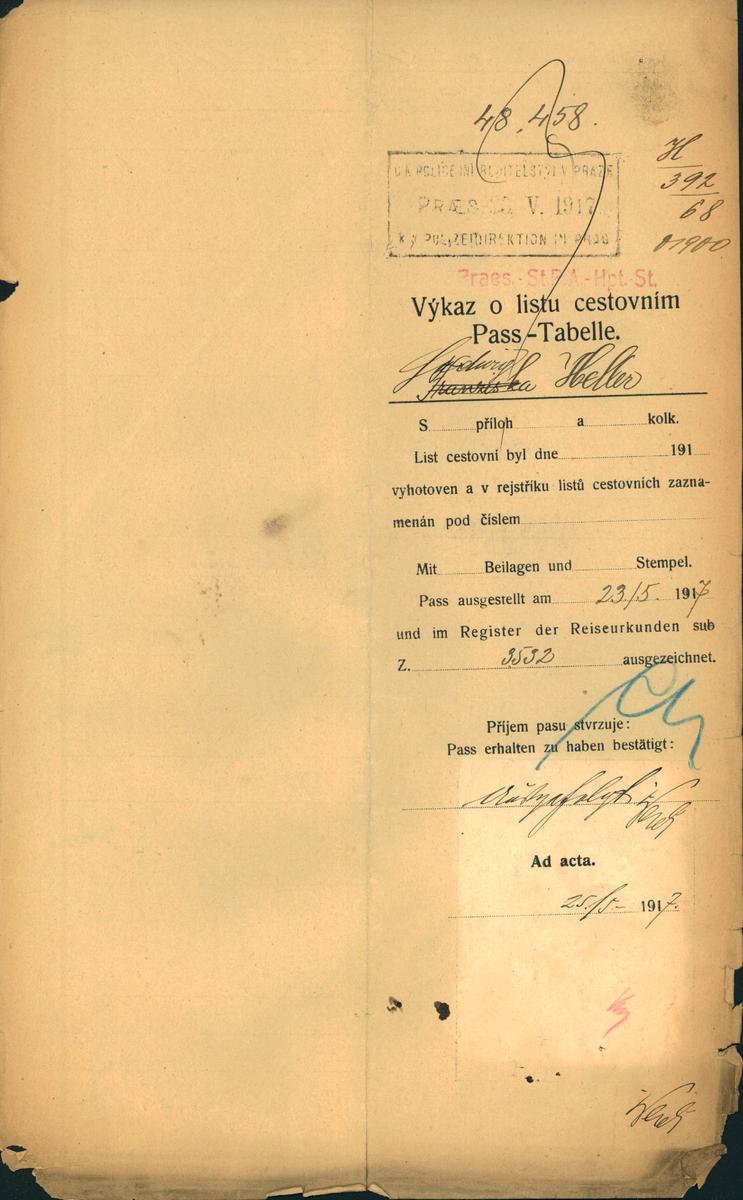 48.458.
H
392
68
01900
C.K. POLICEJNÍ ŘEDITELSTVÍ V PRAZE
PRÆS V. 1917
K.K. POLIZEIDIREKTION IN PRAG
Praes.-St.P.A.-Hpt.-St.
Výkaz o listu cestovním
Pass-Tabelle.
Heller
S příloh a kolk.
List cestovní byl dne 191
vyhotoven a v rejstříku listů cestovních zazna-
menán pod číslem
Mit Beilagen und Stempel.
Pass ausgestellt am 23./5. 1917
und im Register der Reiseurkunden sub
Z. 3532 ausgezeichnet.
Příjem pasu stvrzuje:
Pass erhalten zu haben bestätigt:
Ausgefolgt
Ad acta.
25./5. 1917.